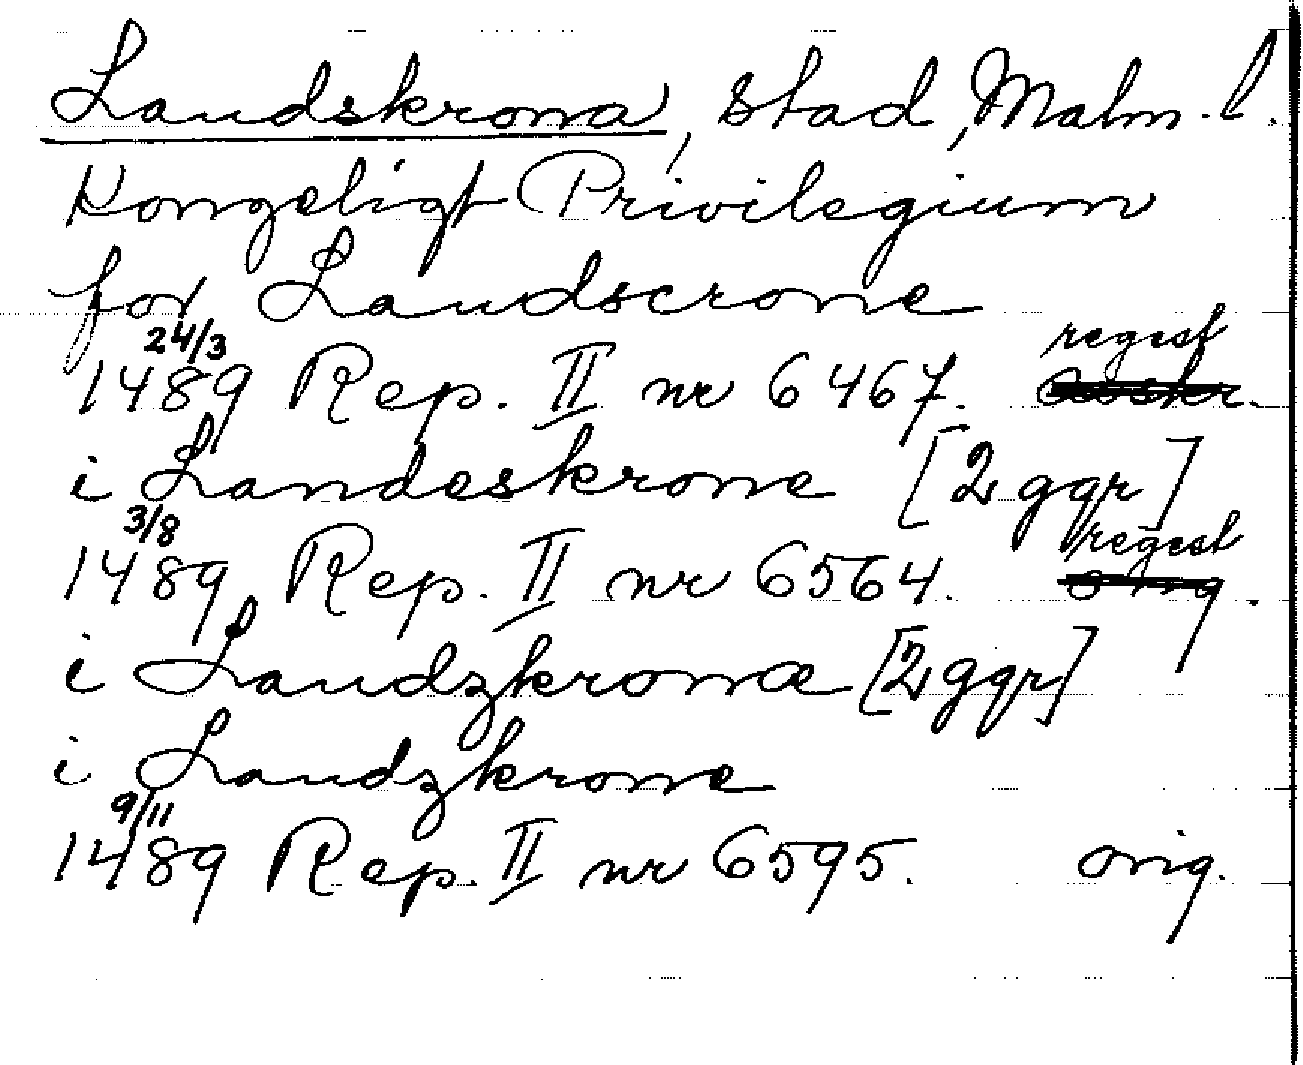 Landskrona, stad, Malm. l.
Kongeligt Privilegium
for Landscrone
24/3 regest
1489 Rep. II nr 6467. avskr.
i Landeskrone [2 ggr]
3/8 regest
1489 Rep. II nr 6564. orig.
i Landzkronæ [2 ggr]
i Landzkrone
9/11
1489 Rep. II nr 6595. orig.